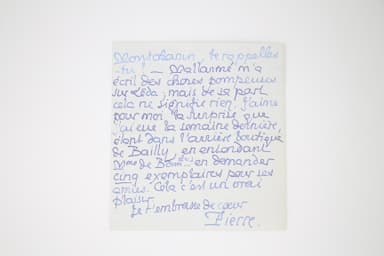 Montobarin, te rappelles
-tu ! — Mallarmé m'a
écrit des choses pompeuses
sur Léda, mais de sa part
cela ne signifie rien. J'aime
pour moi, la surprise que
j'ai eue la semaine dernière,
étant dans l'arrière boutique
de Bailly, en entendant
Mme de en demander
cinq exemplaires pour ses
amies. Cela c'est un vrai
plaisir.
Je t'embrasse de cœur
Pierre.